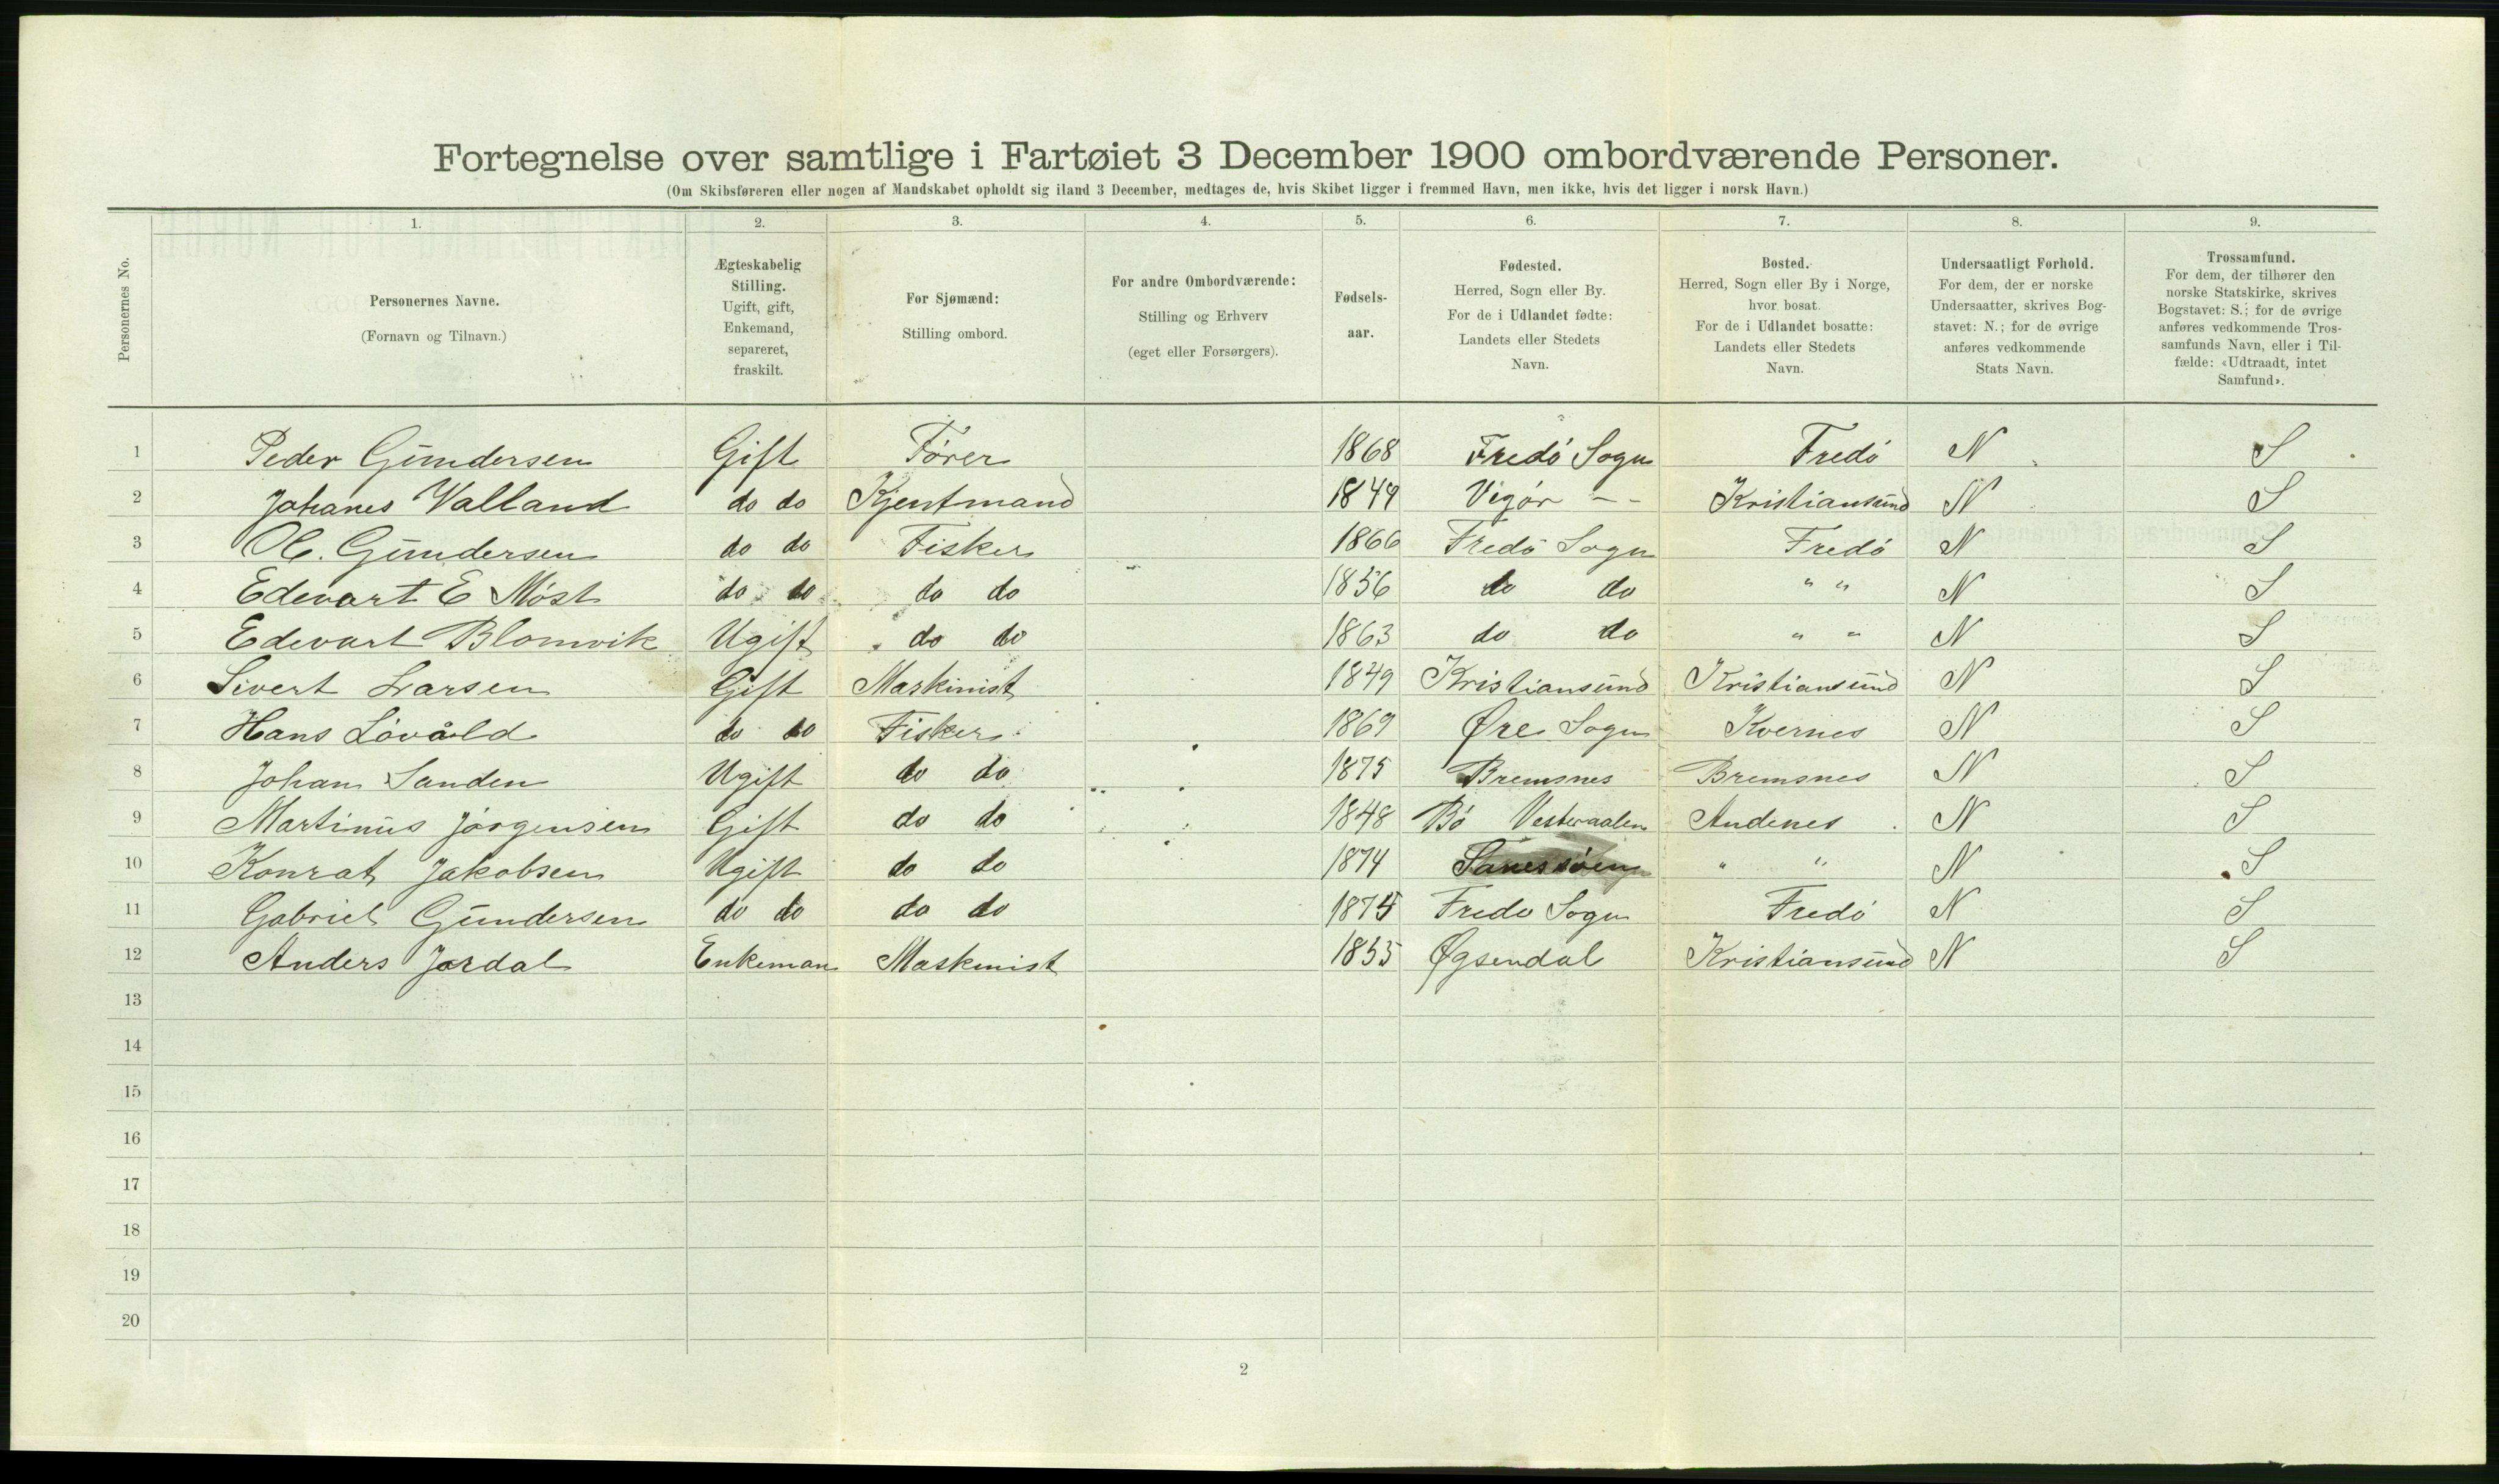 Fortegnelse over samtlige i Fartøiet 3 December 1900 ombordværende Personer.
(Om Skibsføreren eller nogen af Mandskabet opholdt sig iland 3 December, medtages de, hvis Skibet ligger i fremmed Havn, men ikke, hvis det ligger i norsk Havn.)
Personernes No.
1. 2. 3. 4. 5. 6. 7. 8. 9.
Personernes Navne.
(Fornavn og Tilnavn.)
Ægteskabelig
Stilling.
Ugift, gift,
Enkemand,
separeret,
fraskilt.
For Sjømænd:
Stilling ombord.
For andre Ombordværende:
Stilling og Erhverv
(eget eller Forsørgers).
Fødsels-
aar.
Fødested.
Herred, Sogn eller By.
For de i Udlandet fødte:
Landets eller Stedets
Navn.
Bosted.
Herred, Sogn eller By i Norge,
hvor bosat.
For de i Udlandet bosatte:
Landets eller Stedets
Navn.
Undersaatligt Forhold.
For dem, der er norske
Undersaatter, skrives Bog-
stavet: N.; for de øvrige
anføres vedkommende
Stats Navn.
Trossamfund.
For dem, der tilhører den
norske Statskirke, skrives
Bogstavet: S.; for de øvrige
anføres vedkommende Tros-
samfunds Navn, eller i Til-
fælde: «Udtraadt, intet
Samfund».
1 Peder Gundersen Gift Fører 1868 Fredö Sogn Fredö N S
2 Johanes Valland do do Kjentmand 1849 Vigör - - Kristiansund N S
3 Ol. Gundersen do do Fisker 1866 Fredö Sogn Fredö N S
4 Edevart E Möst do do do do 1856 do do " " N S
5 Edevart Blomvik Ugift do do 1863 do do " " N S
6 Sivert Larsen Gift Maskinist 1849 Kristiansund Kristiansund N S
7 Hans Lövåld do do Fisker 1869 Øre Sogn Kvernes N S
8 Johan Sanden Ugift do do 1875 Bremsnes Bremsnes N S
9 Martinus Jörgensen Gift do do 1848 Bö Vesteraalen Andenes N S
10 Konrat Jakobsen Ugift do do 1874 " " N S
11 Gabriel Gundersen do do do do 1875 Fredö Sogn Fredö N S
12 Anders Jordal Enkeman Maskinist 1855 Øgsendal Kristiansund N S
13
14
15
16
17
18
19
20
2